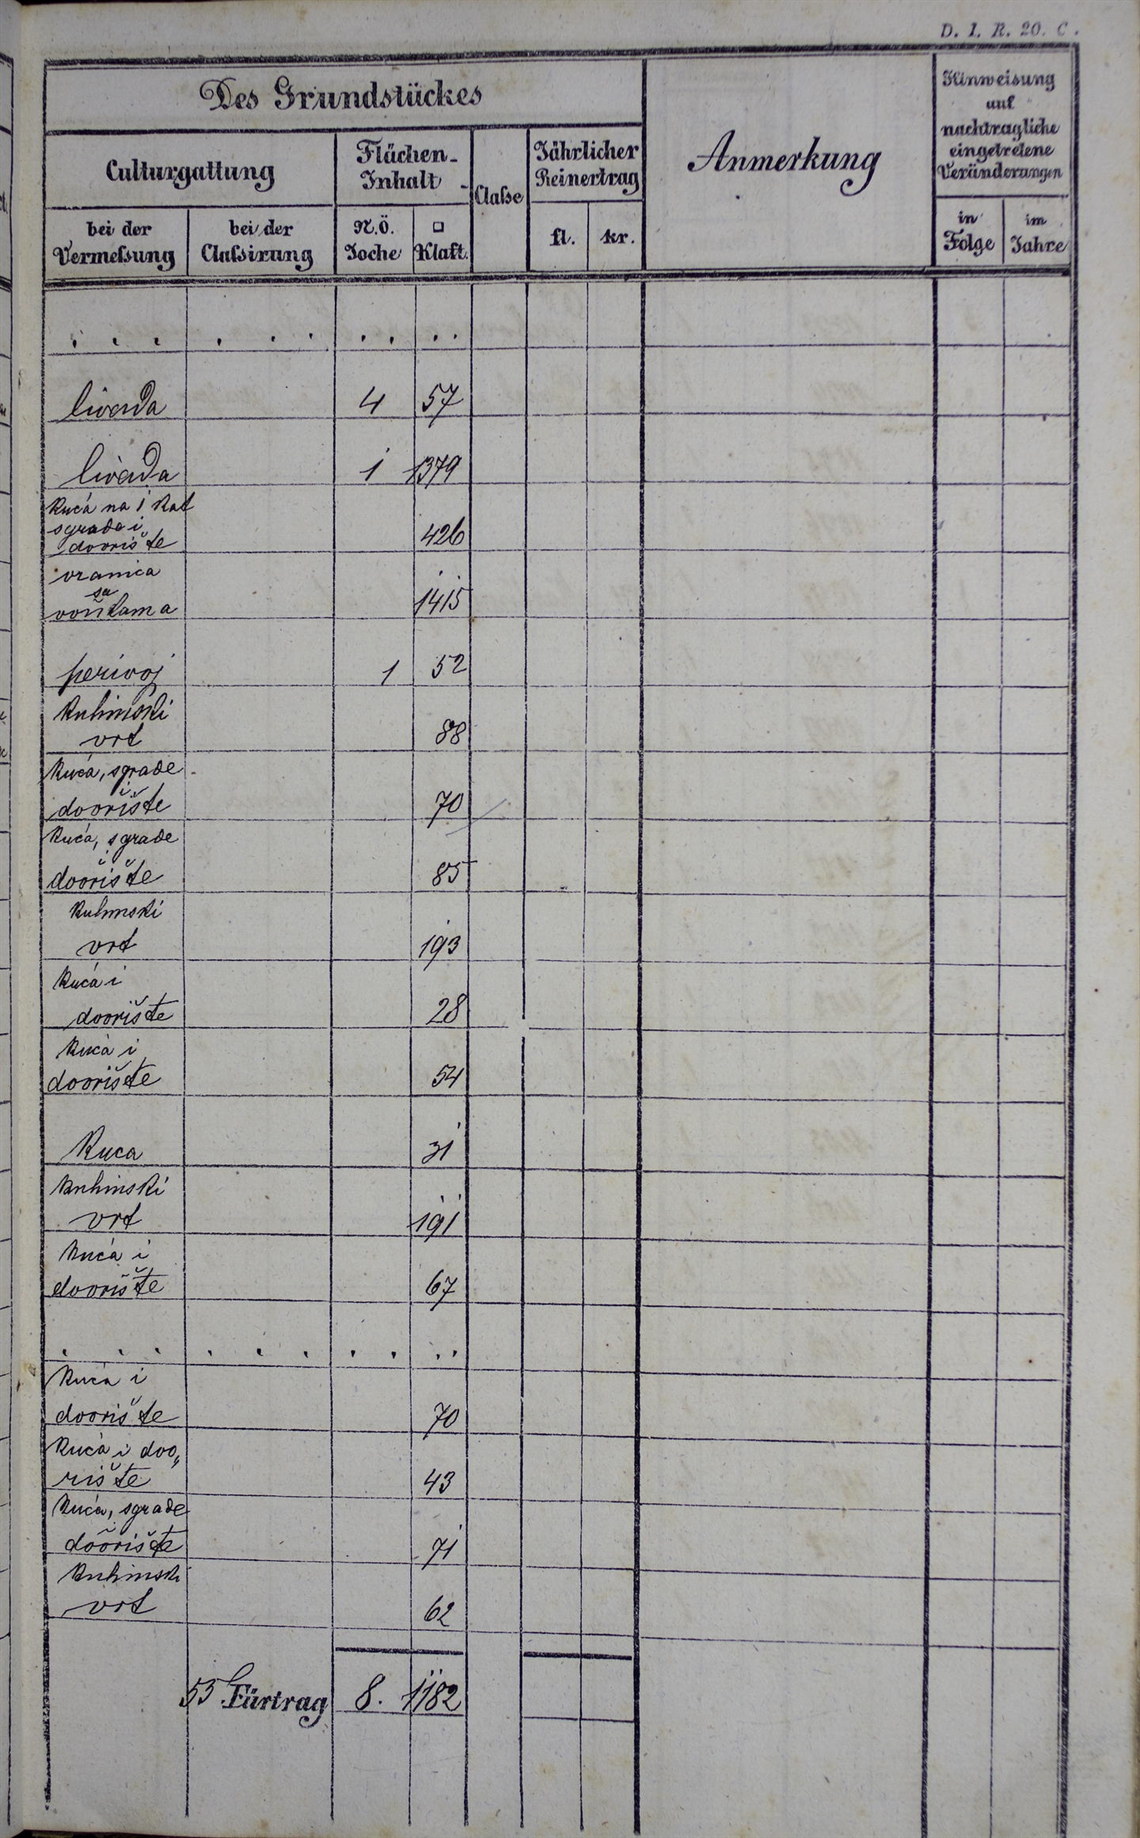 D. I. R. 20. C.
Des Grundstückes
Anmerkung
Hinweisung
auf
nachtragliche
eingetretene
Veränderungen
Culturgattung
Flächen-
Inhalt
Classe
Jährlicher
Reinertrag
bei der
Vermessung
bei der
Classirung
N.Ö.
Joche
□
Klaft.
fl.
kr.
in
Folge
im
Jahre
. . . . . . . . . .
livada 4 57
livada 1 1379
Kuća na 1 kat
sgrade i
dvorište 426
oranica
sa
voćkama 1415
perivoj 1 52
Kuhinski
vrt 88
Kuća, sgrade
i
dvorište 70
Kuća, sgrade
i
dvorište 85
Kuhinski
vrt 193
Kuća i
dvorište 28
Kuća i
dvorište 54
Kuća 31
Kuhinski
vrt 191
Kuća i
dvorište 67
. . . . . . . . . .
Kuća i
dvorište 70
Kuća i dvo„
rište 43
Kuća, sgrade
i
dvorište 71
Kuhinski
vrt 62
53 Fürtrag 8. 1182